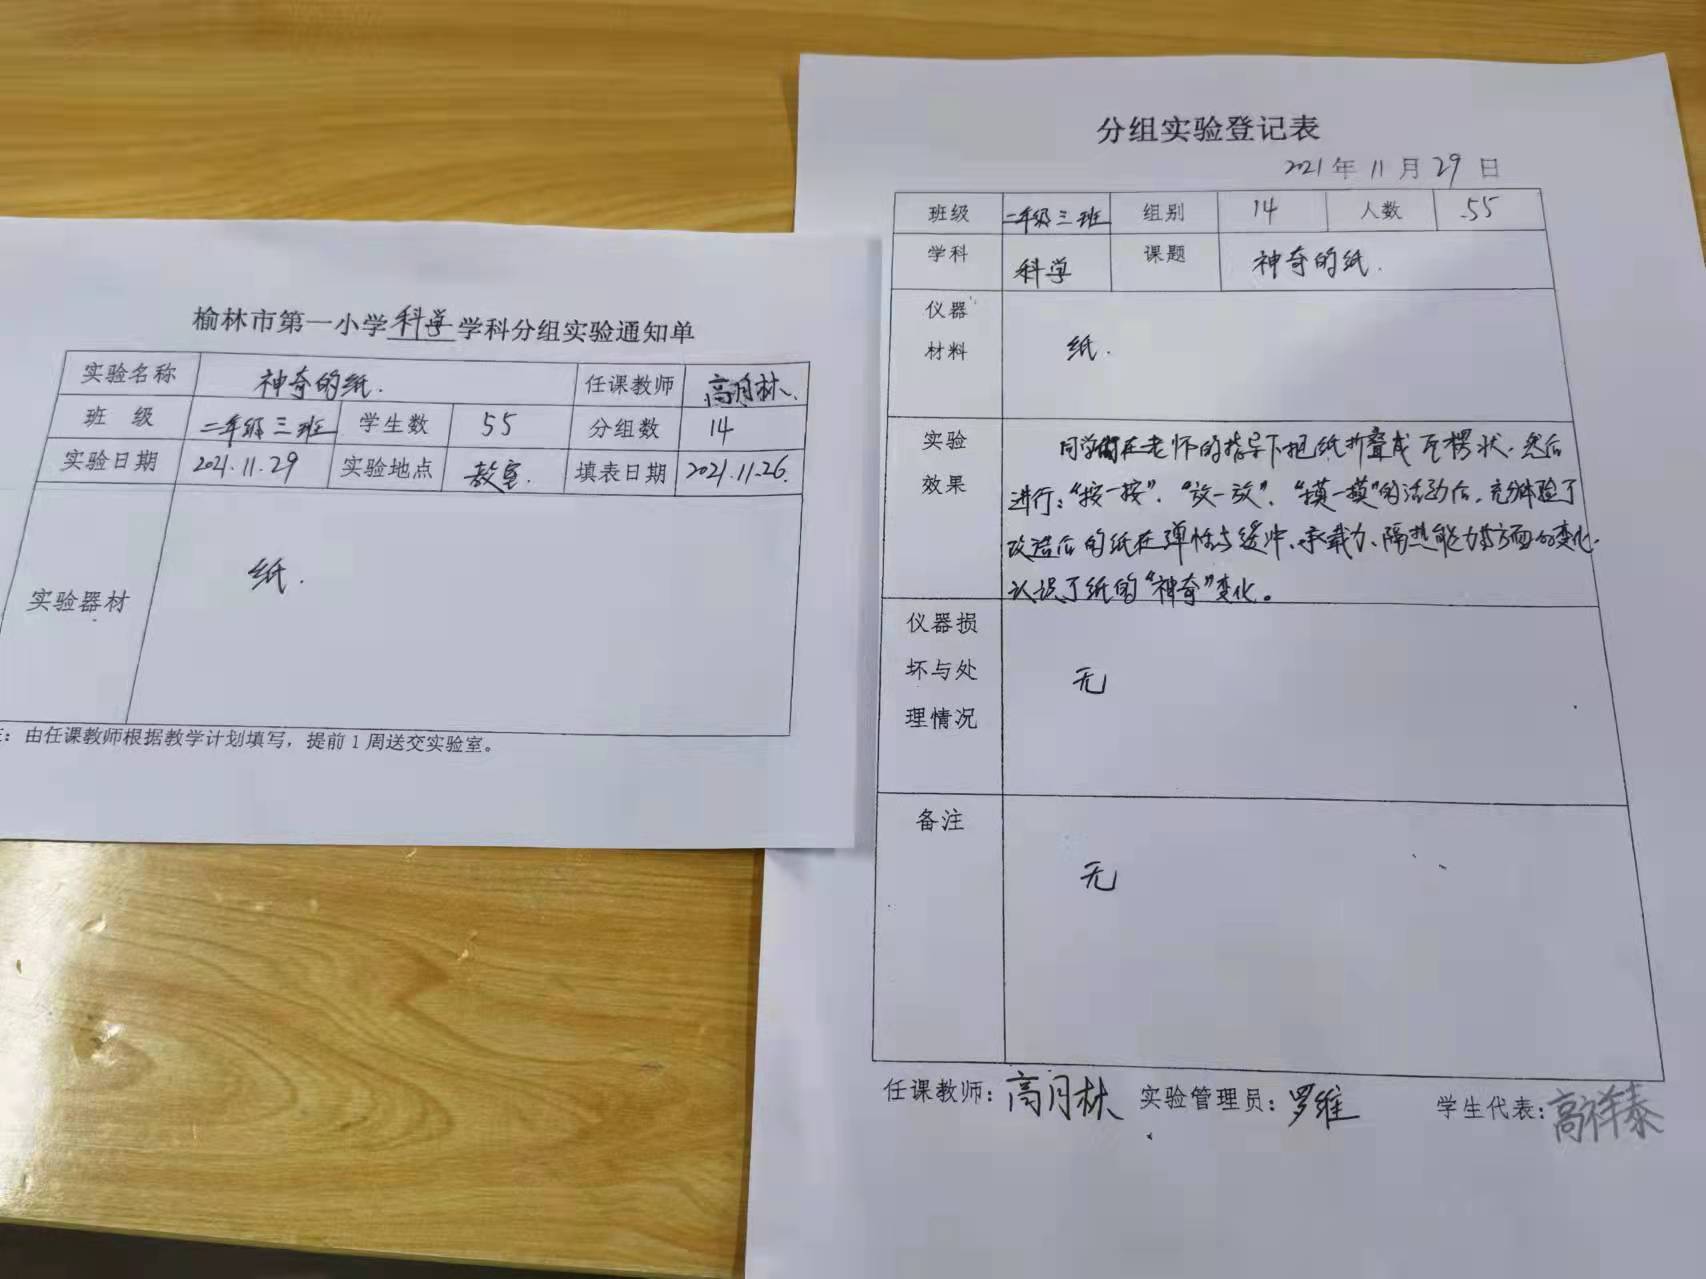 榆林市第一小学科学学科分组实验通知单
实验名称 神奇的纸. 任课教师 高月林.
班 级 二年级三班 学生数 55 分组数 14
实验日期 2021.11.29 实验地点 教室. 填表日期 2021.11.26.
实验器材 纸.
：由任课教师根据教学计划填写，提前1周送交实验室。
分组实验登记表
2021年11月29日
班级 二年级三班 组别 14 人数 55
学科 科学 课题 神奇的纸.
仪器
材料
纸.
实验
效果
同学们在老师的指导下把纸折叠成瓦楞状.然后
进行："按一按"、"放一放"、"摸一摸"的活动后，充分体验了
改造后的纸在弹性与缓冲、承载力、隔热能力等方面的变化.
认识了纸的"神奇"变化。
仪器损
坏与处
理情况
无
备注
无
任课教师：高月林 实验管理员：罗维 学生代表：高祥泰